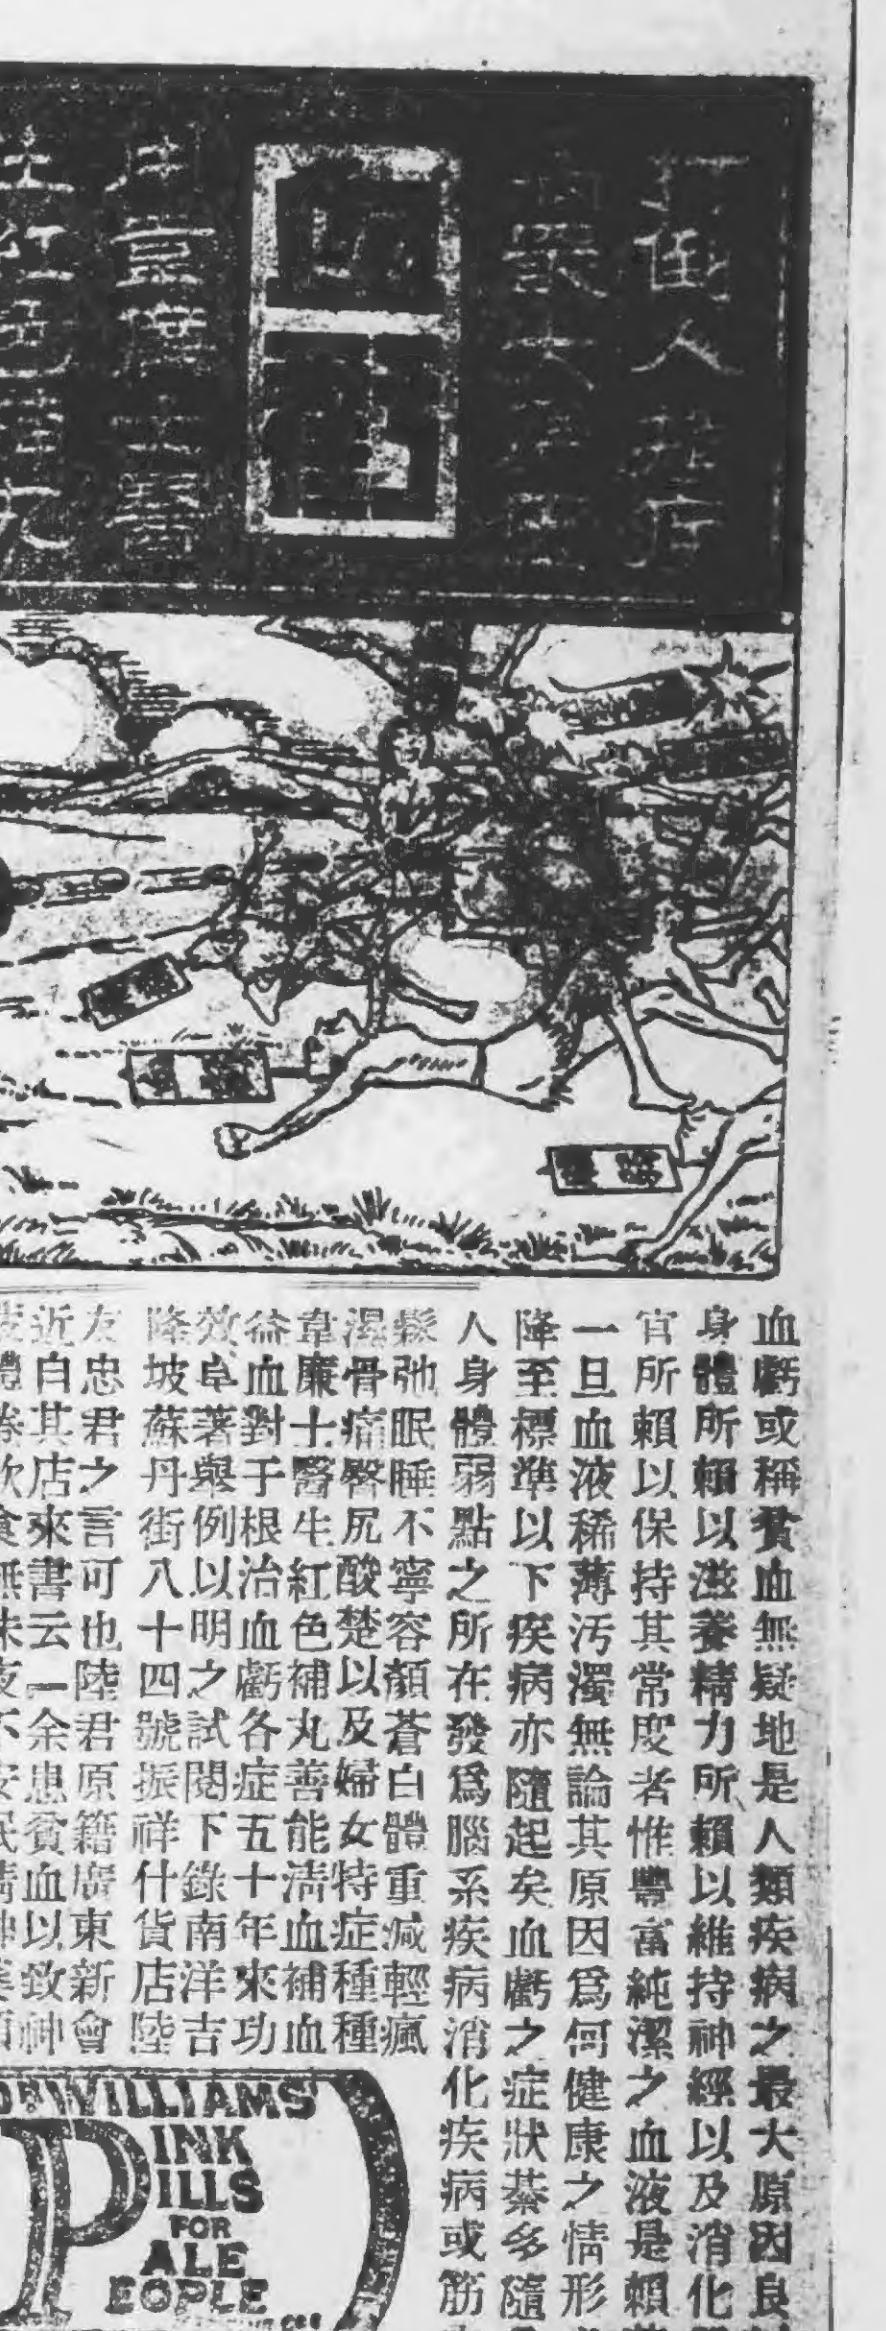 打倒人類疾
病最大原因
血虧
用韋廉士醫
生紅色補丸
血虧或稱貧血無疑地是人類疾病之最大原因良
身體所賴以滋養精力所賴以維持神經以及消化
官所賴以保持其常度者惟豐富純潔之血液是賴
一旦血液稀薄汚濁無論其原因爲何健康之情形
降至標準以下疾病亦隨起矣血虧之症狀綦多隨
人身體弱點之所在發爲腦系疾病消化疾病或筋
鬆弛眠睡不寧容顏蒼白體重減輕瘋
濕骨痛臀尻酸楚以及婦女特症種種
韋廉士醫生紅色補丸善能淸血補血
益血對于根治血虧各症五十年來功
效卓著舉例以明之試閱下錄南洋吉
隆坡蘇丹街八十四號振祥什貨店陸
友忠君之言可也陸君原籍廣東新會
近自其店來書云余患貧血以致神
DR WILLIAMS'
PINK
PILLS
FOR
PALE
PEOPLE